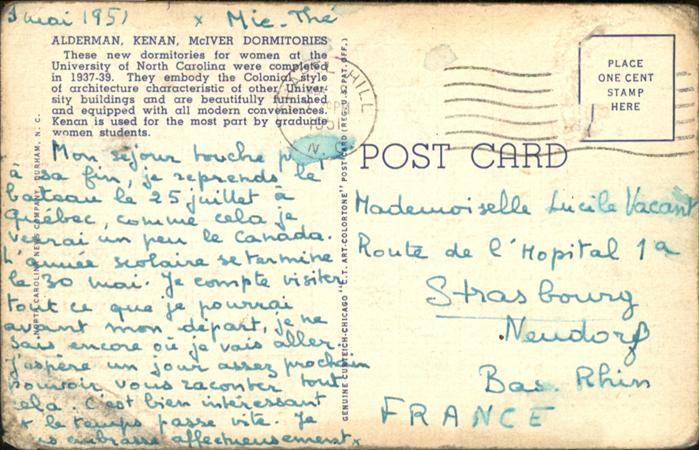 3 mai 1951 x Mic-Thé
ALDERMAN, KENAN, McIVER DORMITORIES
These new dormitories for women at the
University of North Carolina were completed
in 1937-39. They embody the Colonial style
of architecture characteristic of other Univer-
sity buildings and are beautifully furnished
and equipped with all modern conveniences.
Kenan is used for the most part by graduate
women students.
Mon séjour touche
à sa fin, je reprends le
bateau le 25 juillet à
Québec, comme cela je
verrai un peu le Canada.
L'année scolaire se termine
le 30 mai. Je compte visiter
tout ce que je pourrai
avant mon départ, je ne
sais encore où je vais aller.
J'espère un jour assez prochain
pouvoir vous raconter tout
cela. C'est bien intéressant
le temps passe vite. Je
embrasse affectueusement x
NORTH CAROLINA NEWS COMPANY, DURHAM, N. C.
GENUINE CURTEICH-CHICAGO "C.T. ART-COLORTONE" POST CARD (REG. U.S. PAT. OFF.)
HILL
1951
N
PLACE
ONE CENT
STAMP
HERE
POST CARD
Mademoiselle Lucile Vacant
Route de l'Hopital 1a
Strasbourg
Neudorf
Bas. Rhin
FRANCE